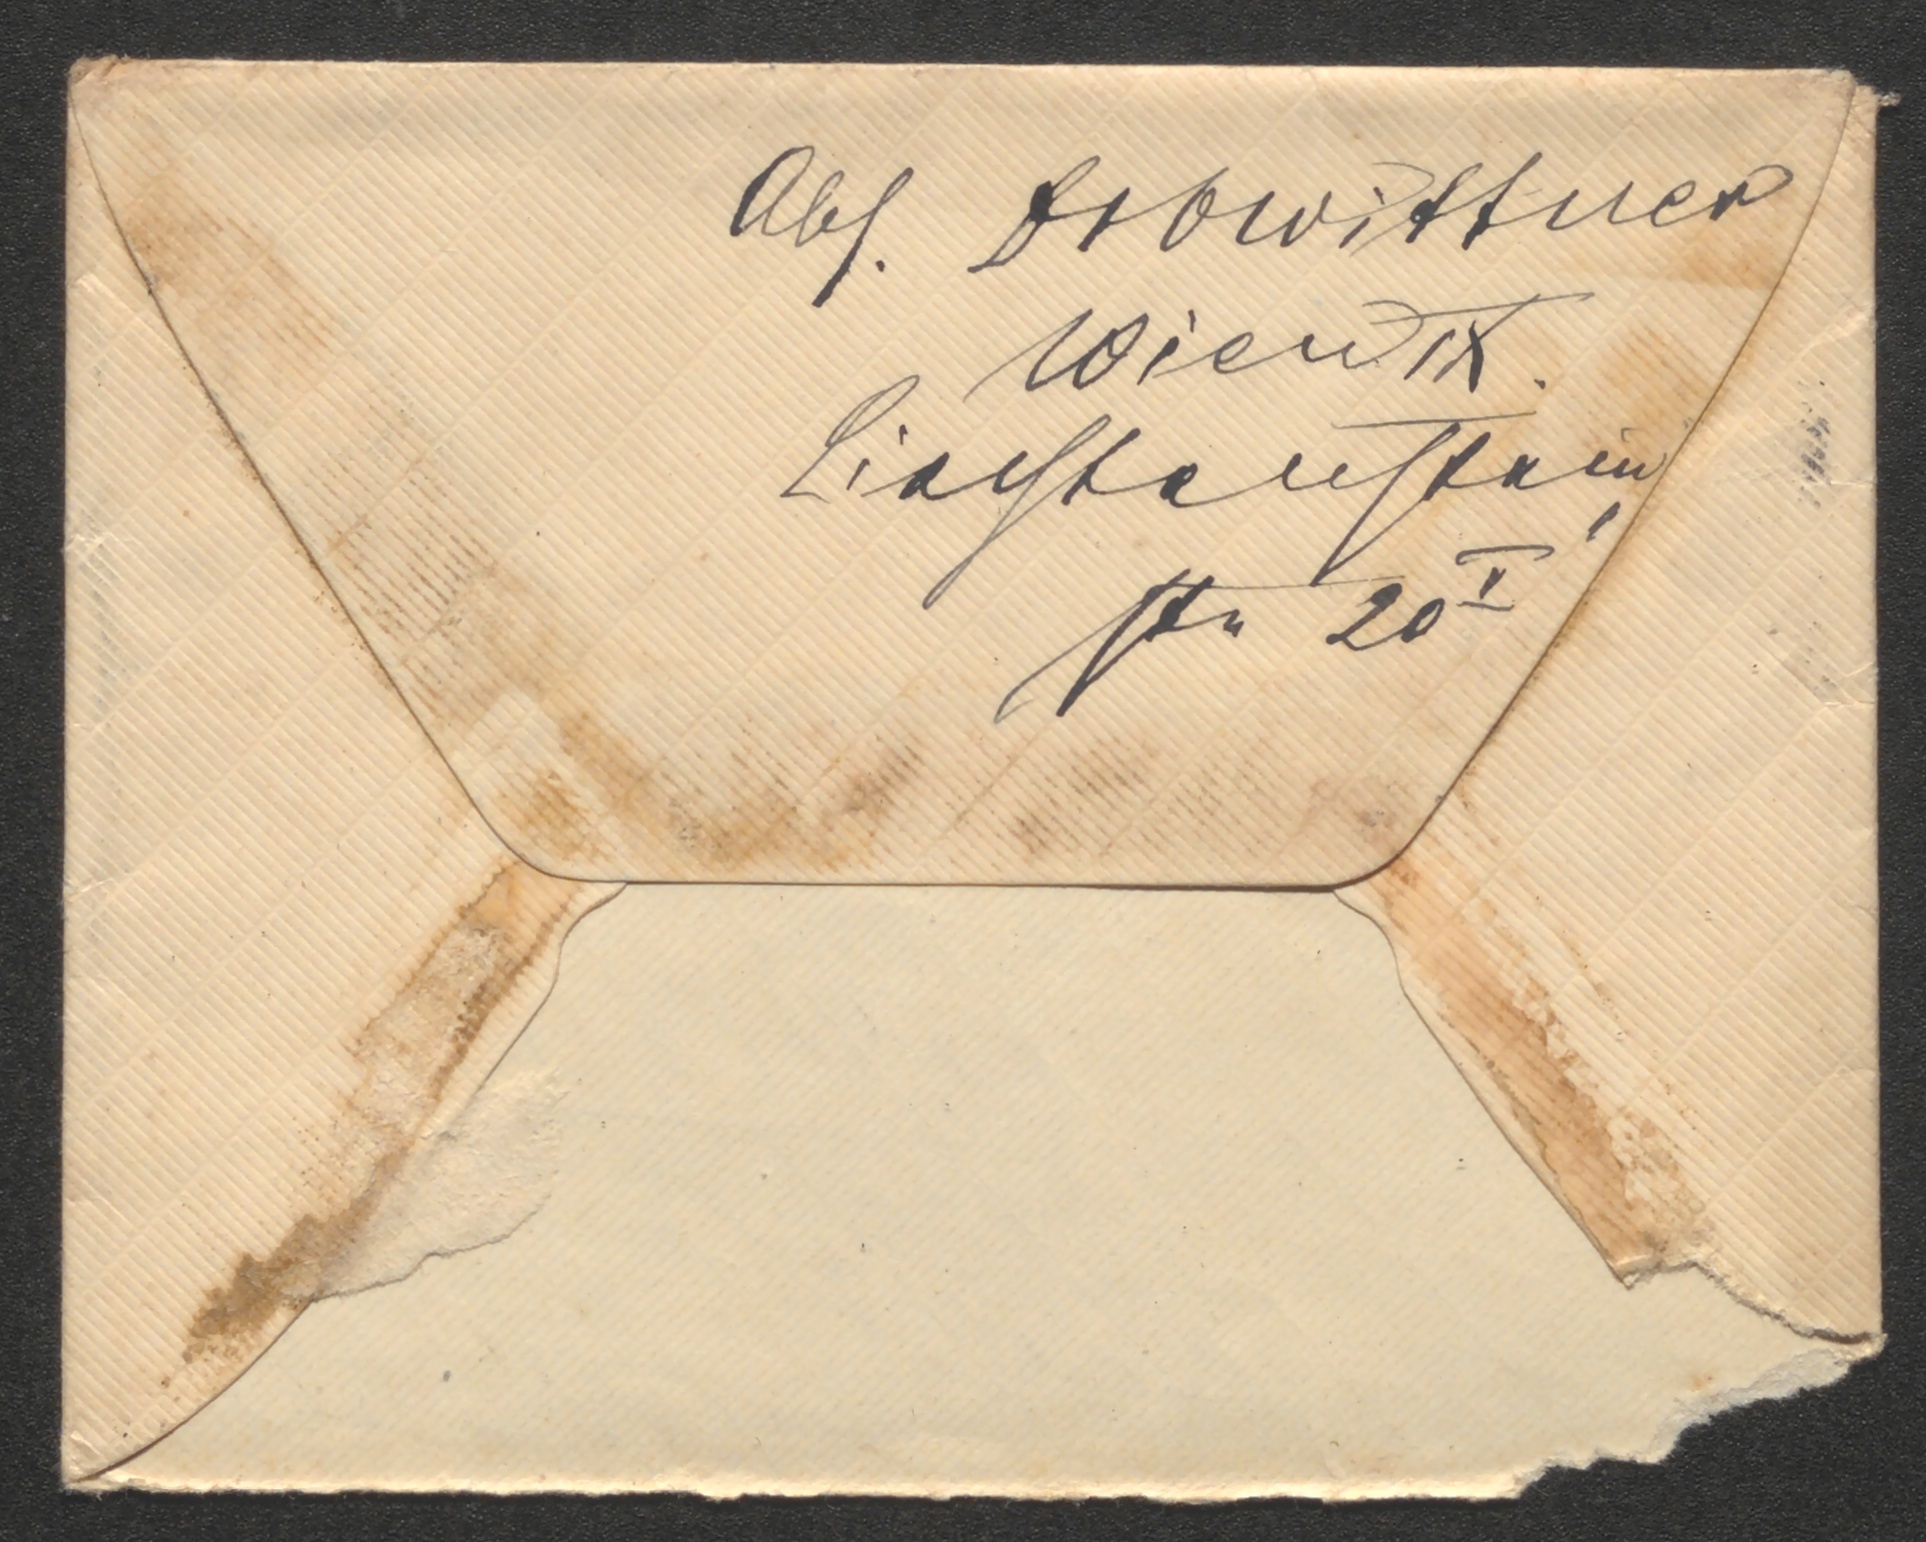 Abs. Drbwittner
Wien IX.
Liechtenstein
str 20 I